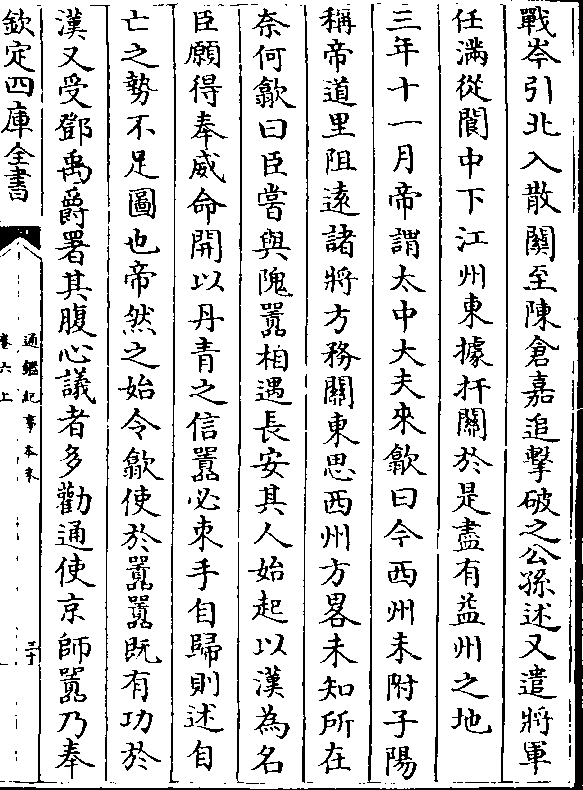 戰岑引北入散關至陳倉嘉追擊破之公孫述又遣將軍
任滿從閬中下江州東據扞關於是盡有益州之地
三年十一月帝謂太中大夫來歙曰今西州未附子陽
稱帝道里阻遠諸將方務關東思西州方畧未知所在
奈何歙曰臣嘗與隗囂相遇長安其人始起以漢為名
臣願得奉威命開以丹青之信囂必束手自歸則述自
亡之勢不足圖也帝然之始令歙使於囂囂既有功於
漢又受鄧禹爵署其腹心議者多勸通使京師囂乃奉
欽定四庫全書
通鑑紀事本末
卷六上
三十